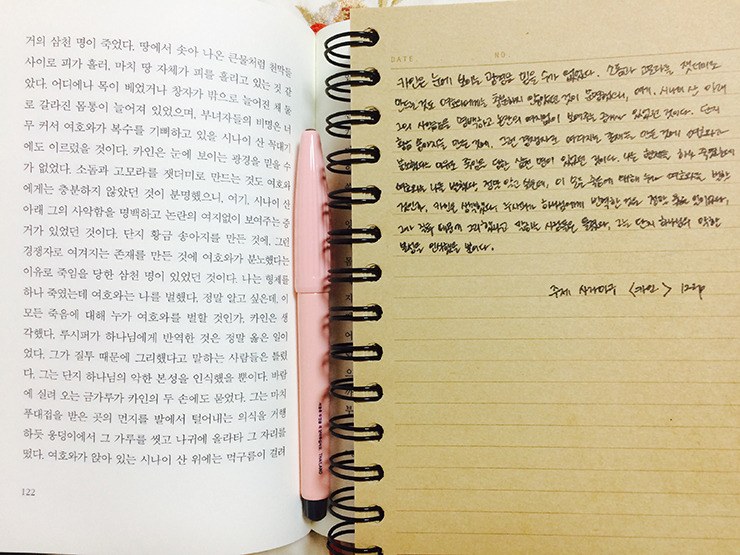 거의 삼천 명이 죽었다. 땅에서 솟아 나온 큰물처럼 천막들
사이로 피가 흘러, 마치 땅 자체가 피를 흘리고 있는 것 같
았다. 어디에나 목이 베였거나 창자가 밖으로 늘어진 채 둘
로 갈라진 몸통이 늘어져 있었으며, 부녀자들의 비명은 너
무 커서 여호와가 복수를 기뻐하고 있을 시나이 산 꼭대기
에도 이르렀을 것이다. 카인은 눈에 보이는 광경을 믿을 수
가 없었다. 소돔과 고모라를 잿더미로 만드는 것도 여호와
에게는 충분하지 않았던 것이 분명했으니, 여기, 시나이 산
아래 그의 사악함을 명백하고 논란의 여지없이 보여주는 증
거가 있었던 것이다. 단지 황금 송아지를 만든 것에, 그런
경쟁자로 여겨지는 존재를 만든 것에 여호와가 분노했다는
이유로 죽임을 당한 삼천 명이 있었던 것이다. 나는 형제를
하나 죽였는데 여호와는 나를 벌했다. 정말 알고 싶은데, 이
모든 죽음에 대해 누가 여호와를 벌할 것인가, 카인은 생
각했다. 루시퍼가 하나님에게 반역한 것은 정말 옳은 일이
었다. 그가 질투 때문에 그리했다고 말하는 사람들은 틀렸
다. 그는 단지 하나님의 악한 본성을 인식했을 뿐이다. 바람
에 실려 오는 금가루가 카인의 두 손에도 묻었다. 그는 마치
푸대접을 받은 곳의 먼지를 발에서 털어내는 의식을 거행
하듯 웅덩이에서 그 가루를 씻고 나귀에 올라타 그 자리를
떴다. 여호와가 앉아 있는 시나이 산 위에는 먹구름이 걸려
122
DATE. NO.
카인은 눈에 보이는 광경을 믿을 수가 없었다. 소돔과 고모라를 잿더미로
만드는 것도 여호와에게는 충분하지 않았던 것이 분명했으니, 여기, 시나이 산 아래
그의 사악함을 명백하고 논란의 여지없이 보여주는 증거가 있었던 것이다. 단지
황금 송아지를 만든 것에, 그런 경쟁자로 여겨지는 존재를 만든 것에 여호와가
분노했다는 이유로 죽임을 당한 삼천 명이 있었던 것이다. 나는 형제를 하나 죽였는데
여호와는 나를 벌했다. 정말 알고 싶은데, 이 모든 죽음에 대해 누가 여호와를 벌할
것인가, 카인은 생각했다. 루시퍼가 하나님에게 반역한 것은 정말 옳은 일이었다.
그가 질투 때문에 그리했다고 말하는 사람들은 틀렸다. 그는 단지 하나님의 악한
본성을 인식했을 뿐이다.
주제 사라마구 <카인> 122p